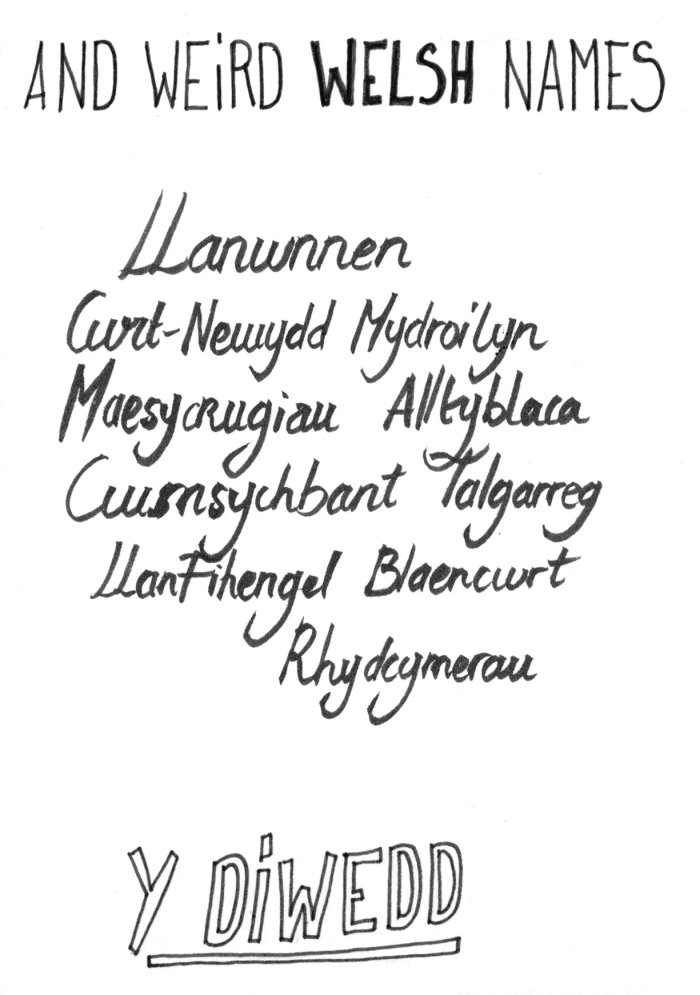 AND WEiRD WELSH NAMES
LLanwnnen
Cwrt-Newydd Mydroilyn
Maesycrugiau Alltyblaca
Cwmsychbant Talgarreg
LLanFihengel Blaencwrt
Rhydcymerau
Y DiWEDD